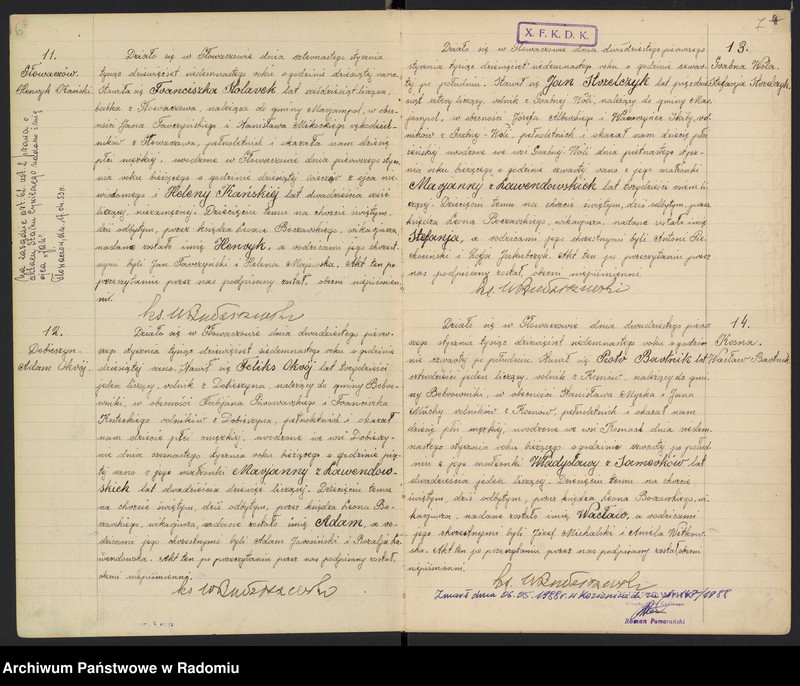 6
11.
Głowaczów.
Henryk Kański.
Na zasadzie art. 62. ust. 2 prawa o
aktach stanu cywilnego nadano imię
ojca „Jan”
Głowaczów, dn. 17.
Działo się w Głowaczowie dnia czternastego stycznia
tysiąc dziewięćset siedemnastego roku o godzinie dziesiątej rano.
Stawiła się Franciszka Polawek lat sześćdziesiąt licząca,
babka z Głowaczowa, należąca do gminy Maryampol, w obec-
ności Jana Tarczyńskiego i Stanisława Mikockiego
ników z Głowaczowa, pełnoletnich i okazała nam dziecię
płci męzkiej, urodzone w Głowaczowie dnia pierwszego stycz-
nia roku bieżącego o godzinie dziesiątej wieczór z ojca nie-
wiadomego i Heleny Kańskiej lat dwadzieścia sześć
liczącej, niezamężnej. Dziecięciu temu na chrzcie świętym,
dziś odbytym, przez księdza Leona Boczarskiego, wikaryusza,
nadane zostało imię Henryk, a rodzicami jego chrzest-
nymi byli Jan Tarczyński i Helena Majewska. Akt ten po
przeczytaniu przez nas podpisany został, obecni niepiśmien-
ni.
12.
Dobieszyn.
Adam Okrój.
Działo się w Głowaczowie dnia dwudziestego pierw-
szego stycznia tysiąc dziewięćset siedemnastego roku o godzinie
dziesiątej rano. Stawił się Feliks Okrój lat trzydzieści
jeden liczący, rolnik z Dobieszyna, należący do gminy Bobro-
wniki, w obecności Fabijana i Franciszka
Kosteckiego rolników z Dobieszyna, pełnoletnich i okazał
nam dziecię płci męzkiej, urodzone we wsi Dobieszy-
nie dnia szesnastego stycznia roku bieżącego o godzinie pią-
tej rano z jego małżonki Maryanny z Lawendow-
skich lat dwadzieścia dziewięć liczącej. Dziecięciu temu
na chrzcie świętym, dziś odbytym, przez księdza Leona Bo-
czarskiego, wikaryusza, nadane zostało imię Adam, a ro-
dzicami jego chrzestnymi byli Adam Jasiński i Rozalja La-
wendowska. Akt ten po przeczytaniu przez nas podpisany został,
obecni niepiśmienni.
7
X. F. K. D. K.
13.
Grabna Wola.
Stefanja Strzelczyk.
Działo się w Głowaczowie dnia dwudziestego pierwszego
stycznia tysiąc dziewięćset siedemnastego roku o godzinie czwar-
tej po południu. Stawił się Jan Strzelczyk lat pięćdzie-
siąt cztery liczący, rolnik z Grabnej Woli, należący do gminy Ma-
ryampol, w obecności Józefa i Wawrzyńca rol-
ników z Grabnej-Woli, pełnoletnich i okazał nam dziecię płci
żeńskiej urodzone we wsi Grabnej-Woli dnia piętnastego stycz-
nia roku bieżącego o godzinie czwartej rano z jego małżonki
Maryanny z Lawendowskich lat trzydzieści osiem li-
czącej. Dziecięciu temu na chrzcie świętym, dziś odbytym, przez
księdza Leona Boczarskiego, wikaryusza, nadane zostało imię
Stefanja, a rodzicami jego chrzestnymi byli Antoni
i Zofja Jakubczyk. Akt ten po przeczytaniu przez
nas podpisany został, obecni niepiśmienni.
14.
Kosna.
Wacław Bartnik.
Działo się w Głowaczowie dnia dwudziestego pierw-
szego stycznia tysiąc dziewięćset siedemnastego roku o godzi-
nie czwartej po południu. Stawił się Piotr Bartnik lat
czterdzieści jeden liczący, rolnik z należący do gmi-
ny Bobrowniki, w obecności Stanisława Myska i Jana
rolników z pełnoletnich i okazał nam
dziecię płci męzkiej, urodzone we wsi dnia siedem-
nastego stycznia roku bieżącego o godzinie czwartej po połud-
niu z jego małżonki Władysławy z Samorków lat
dwadzieścia jeden liczącej. Dziecięciu temu na chrzcie
świętym, dziś odbytym, przez księdza Leona Boczarskiego, wi-
karyusza, nadane zostało imię Wacław, a rodzicami
jego chrzestnymi byli Józef Michalski i Aniela Witkow-
ska. Akt ten po przeczytaniu przez nas podpisany został obecni
niepiśmienni.
Zmarł dnia 06.05.1988 r. w Kozienicach za nr 147/1988
Roman Pomarański
Archiwum Państwowe w Radomiu